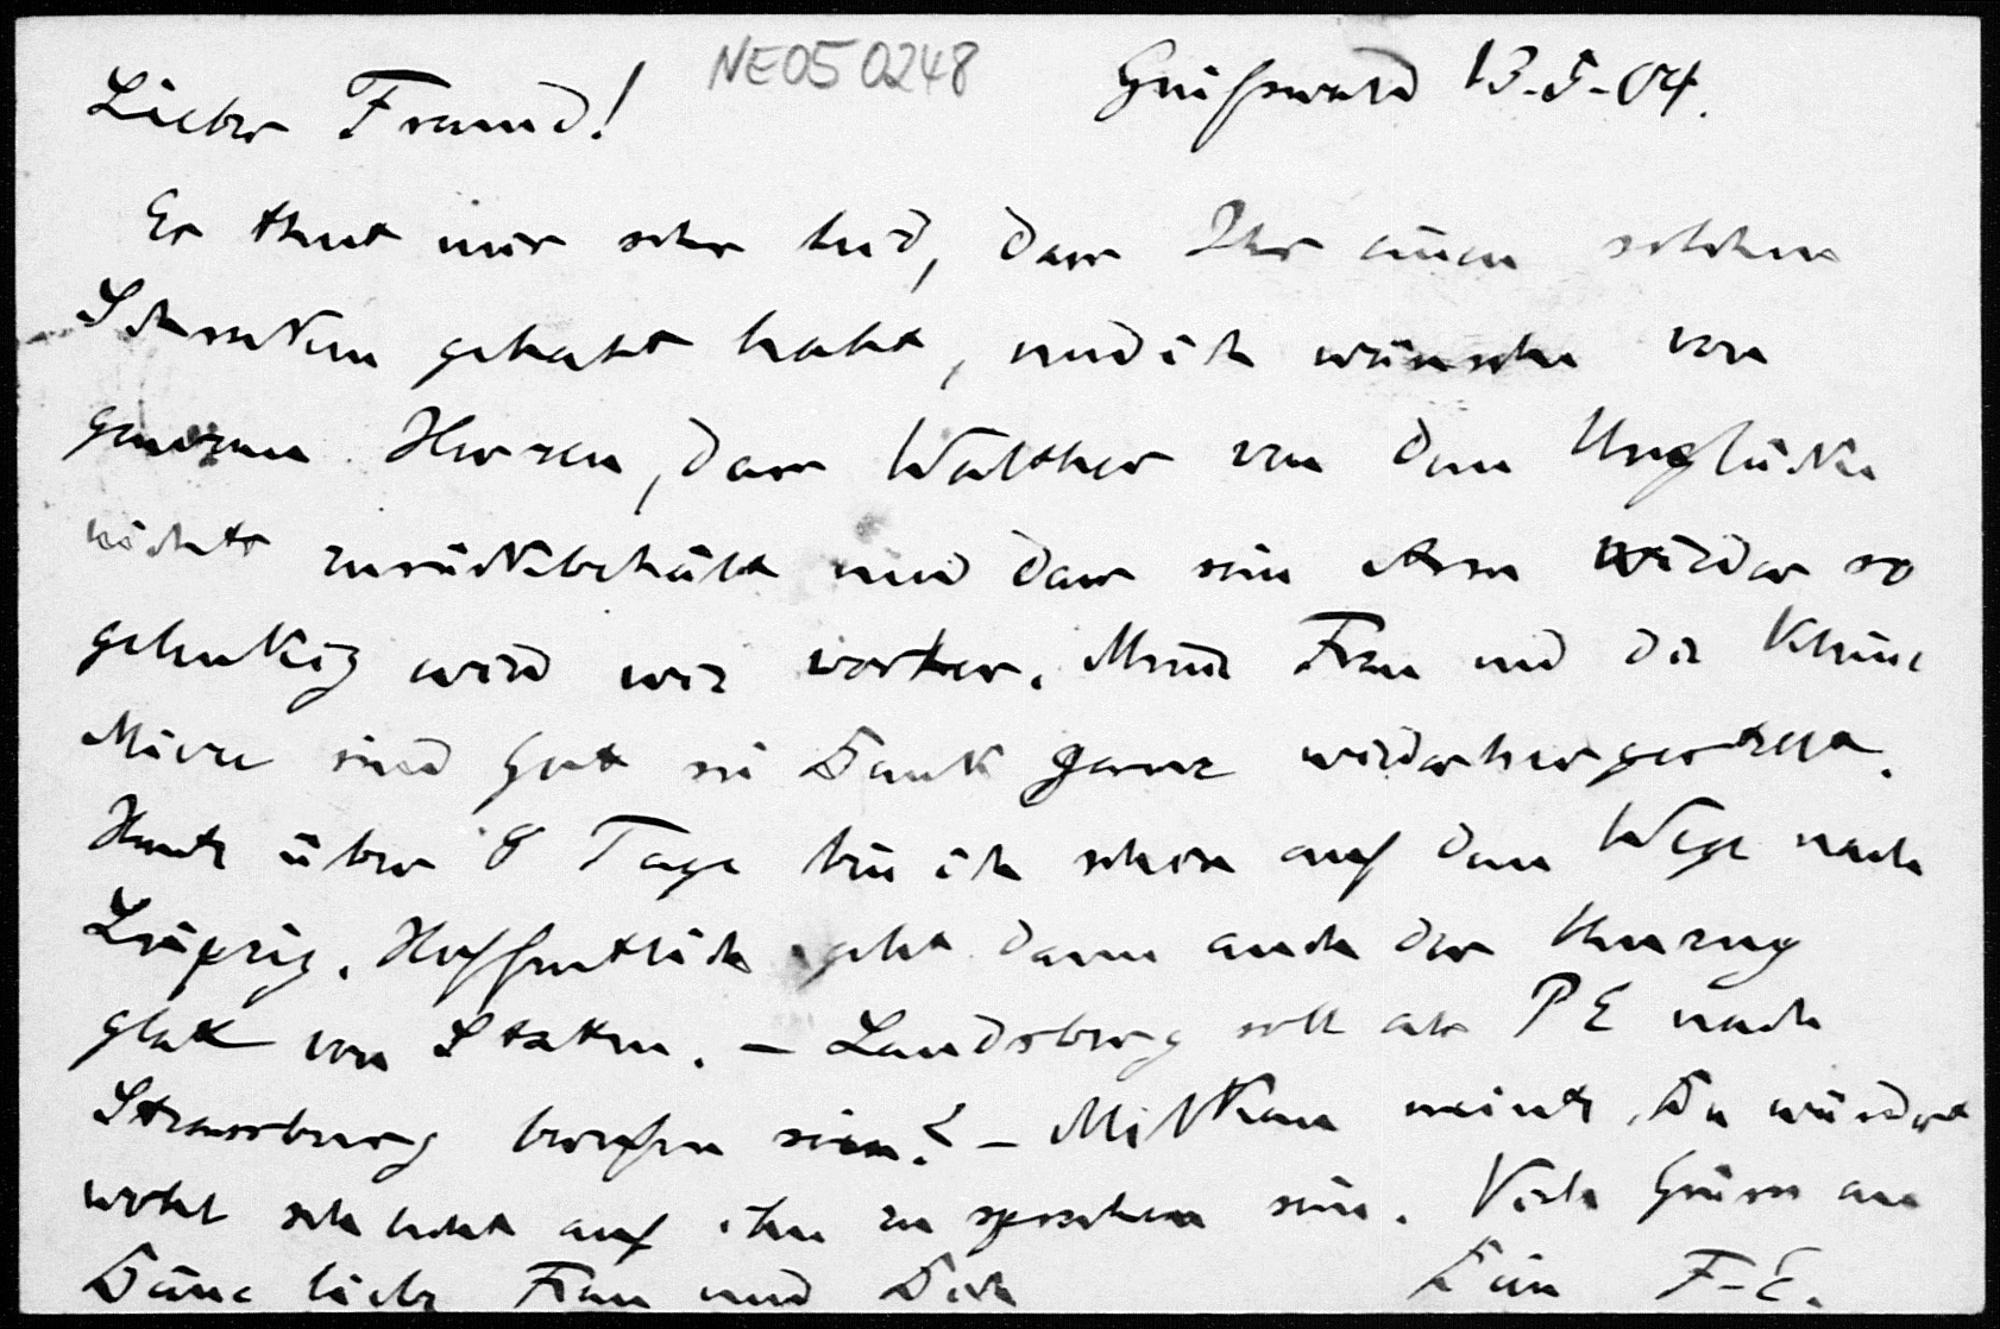 NE050248
Greifswald 13-5-04.
Lieber Freund!
Es thut mir sehr leid, dass Ihr einen solchen
Schrecken gehabt habt, und ich wünsche von
ganzem Herzen, dass Walther von dem Unglücke
nichts zurückbehält und dass sein Arm wieder so
gelenkig wird wie vorher. Meine Frau und die kleine
Mieze sind Gott sei Dank ganz wiederhergestellt.
Heute über 8 Tage bin ich schon auf dem Wege nach
Leipzig. Hoffentlich geht dann auch der Umzug
glatt von Statten. – Landsberg soll als PE nach
Strassburg berufen sein? – Milkau meinte, Du würdest
wohl schlecht auf ihn zu sprechen sein. Viele Grüsse an
Deine liebe Frau und Dich
Dein F-E.